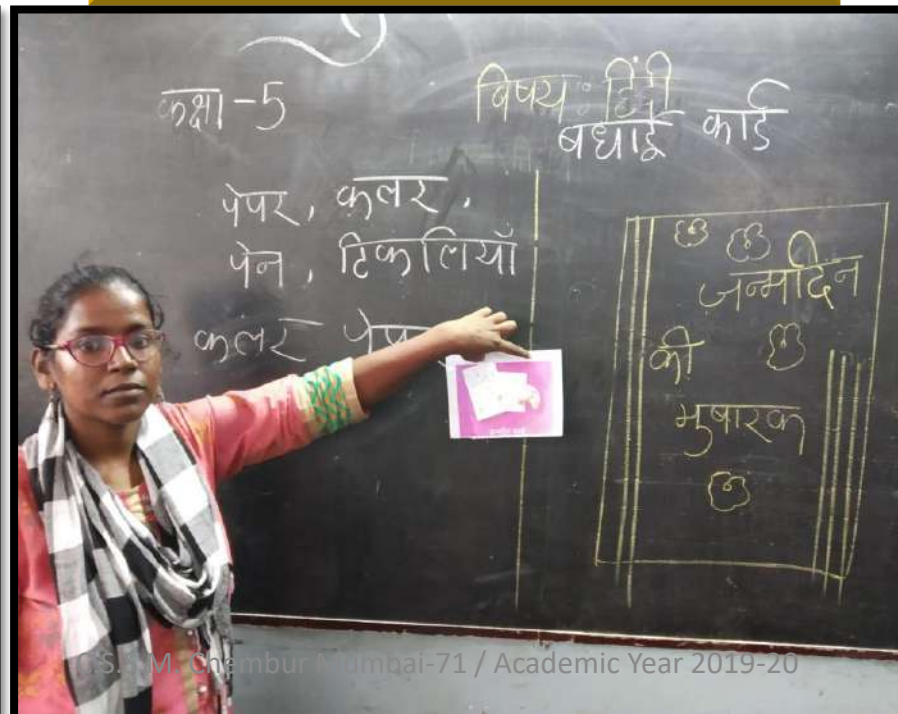 कक्षा -5
विषय : हिंदी
बधाई कार्ड
पेपर, कलर,
पेन, टिकलियाँ
कलर
जन्मदिन
की
मुबारक
Chembur Mumbai-71 / Academic Year 2019-20